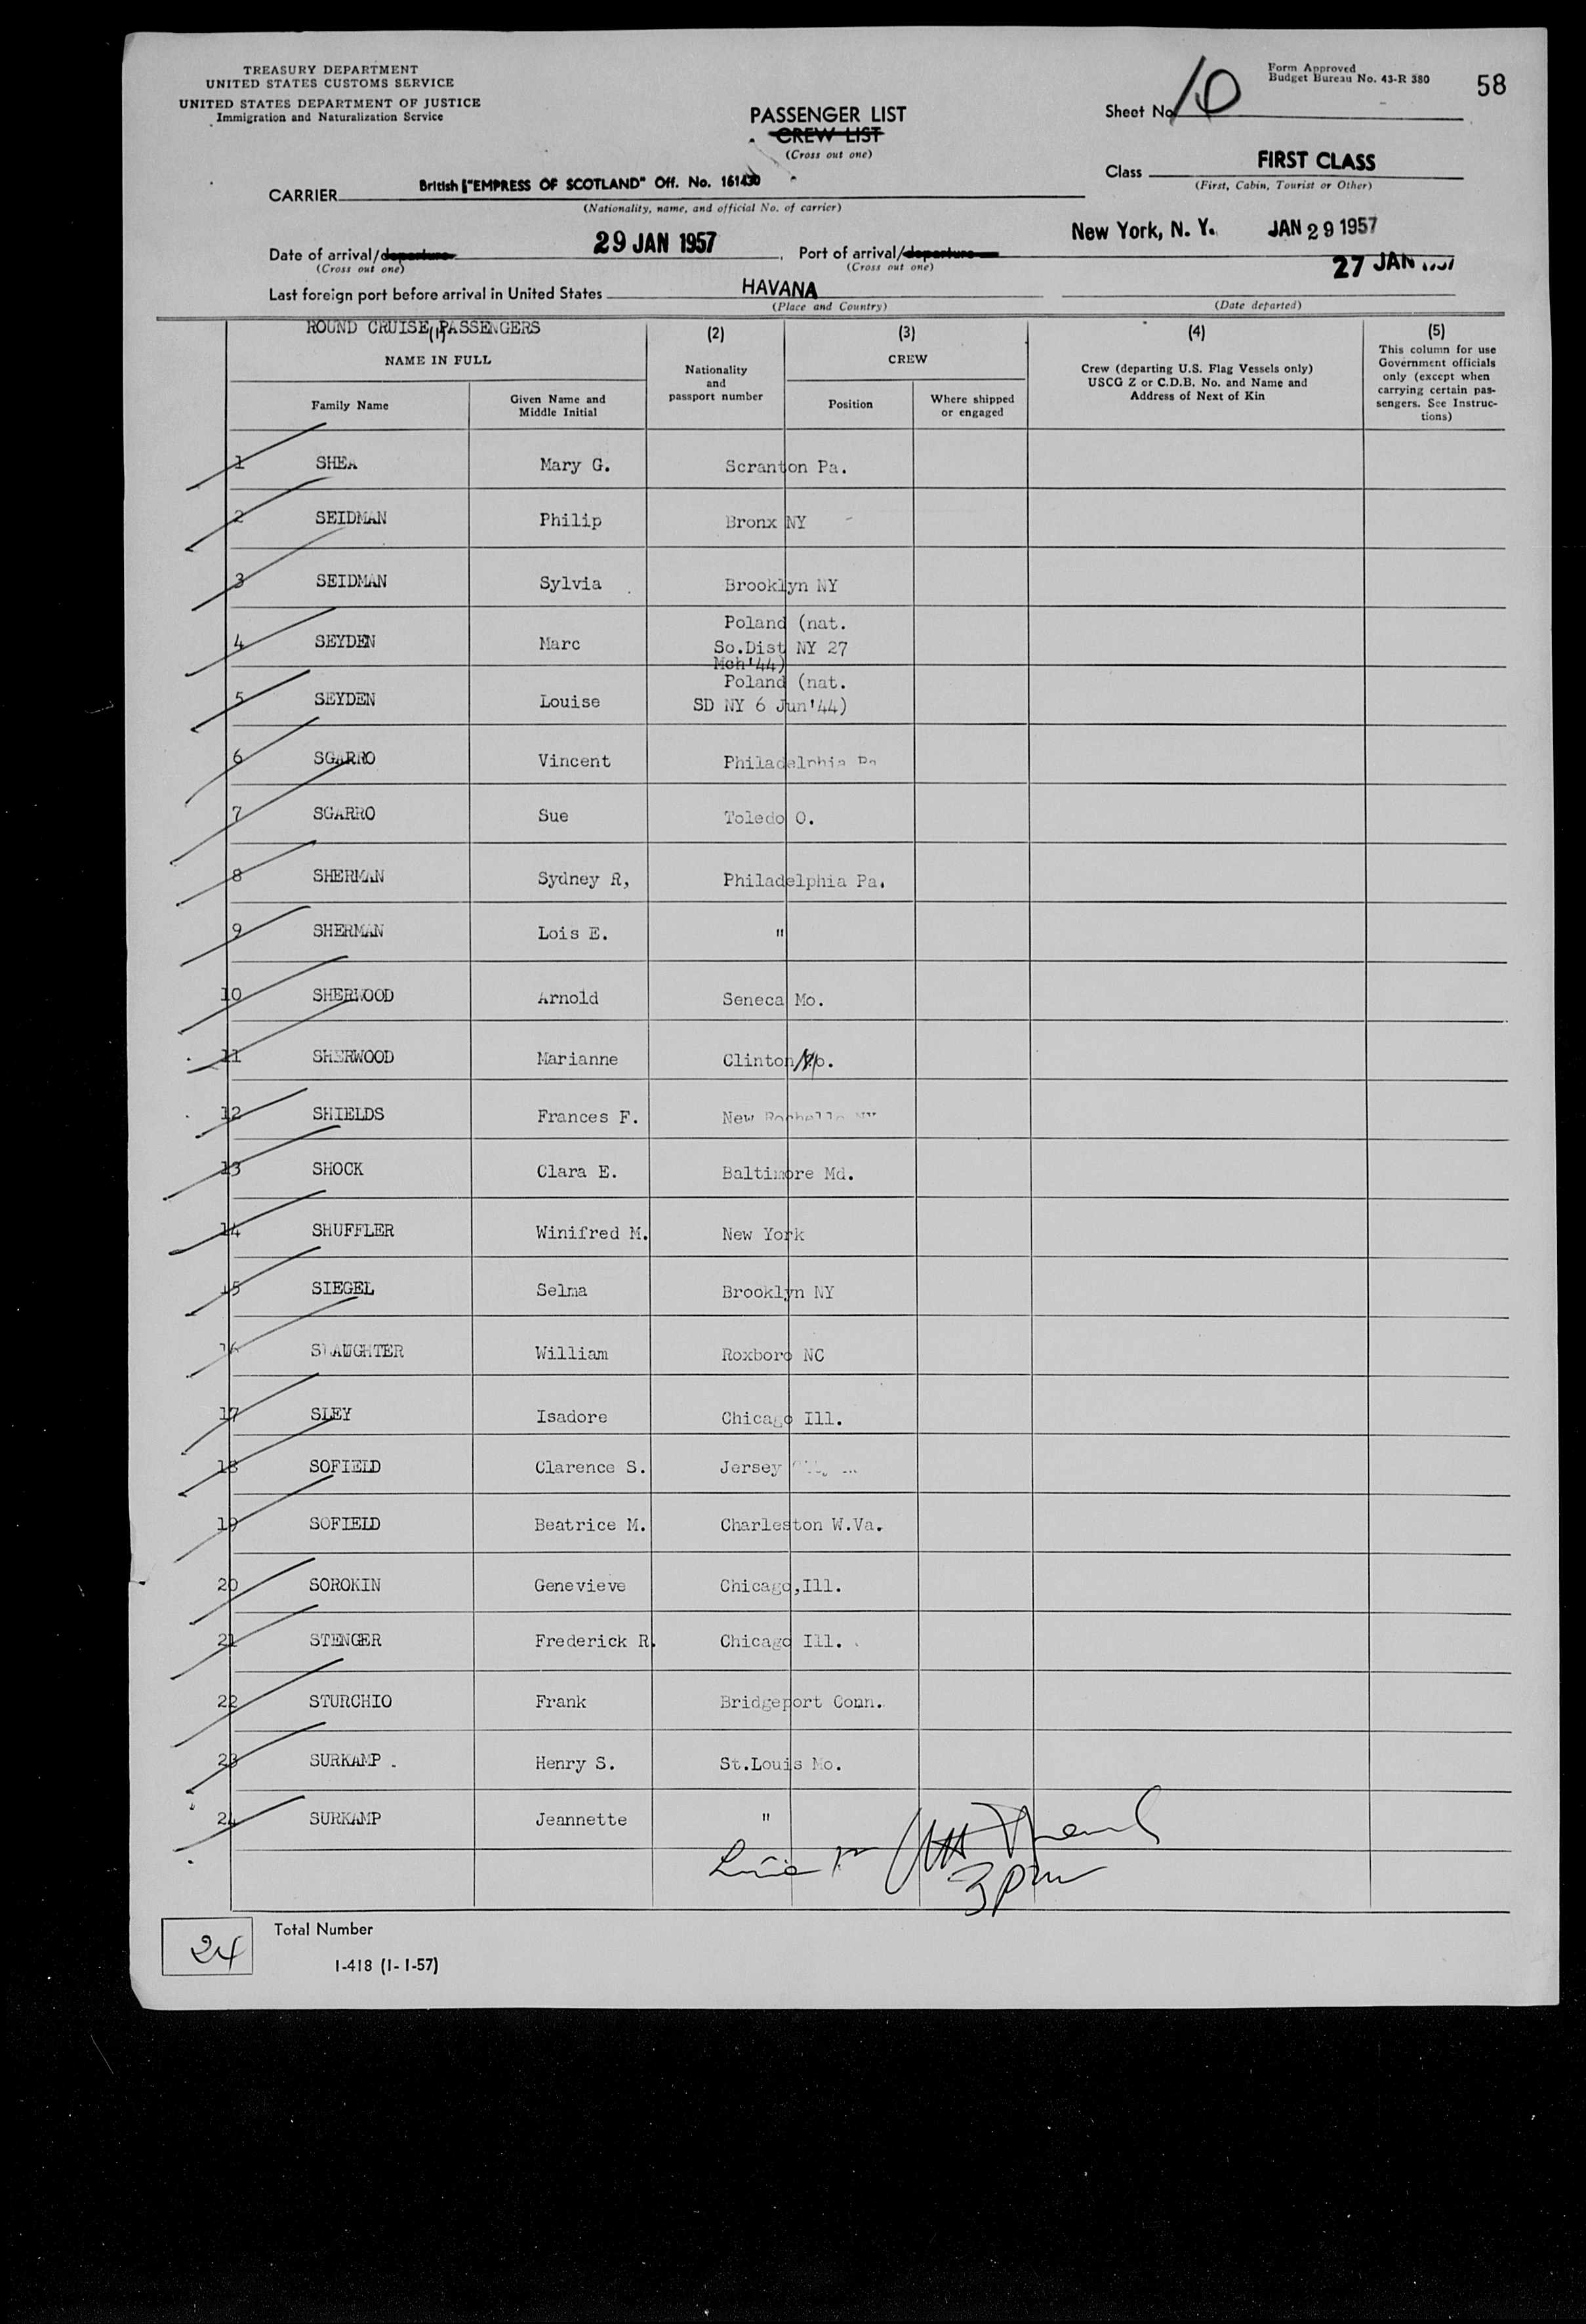 TREASURY DEPARTMENT
UNITED STATES CUSTOMS SERVICE
UNITED STATES DEPARTMENT OF JUSTICE
Immigration and Naturalization Service
PASSENGER LIST
CREW LIST
(Cross out one)
Form Approved
Budget Bureau No. 43-R 380
58
Sheet No. 10
Class FIRST CLASS
(First, Cabin, Tourist or Other)
CARRIER British "EMPRESS OF SCOTLAND" Off. No. 161430
(Nationality, name, and official No. of carrier)
Date of arrival/departure 29 JAN 1957, Port of arrival/departure New York, N. Y. JAN 29 1957
(Cross out one) (Cross out one)
27 JAN
Last foreign port before arrival in United States HAVANA
(Place and Country) (Date departed)
ROUND CRUISE PASSENGERS
(1) (2) (3) (4) (5)
NAME IN FULL
Family Name
Given Name and Middle Initial
Nationality and passport number
CREW
Position
Where shipped or engaged
Crew (departing U.S. Flag Vessels only)
USCG Z or C.D.B. No. and Name and
Address of Next of Kin
This column for use
Government officials
only (except when
carrying certain pas-
sengers. See Instruc-
tions)
1 SHEA Mary G. Scranton Pa.
2 SEIDMAN Philip Bronx NY
3 SEIDMAN Sylvia Brooklyn NY
4 SEYDEN Marc Poland (nat.
So.Dist NY 27
Mch'44)
5 SEYDEN Louise Poland (nat.
SD NY 6 Jun'44)
6 SGARRO Vincent Philadelphia Pa
7 SGARRO Sue Toledo O.
8 SHERMAN Sydney R, Philadelphia Pa.
9 SHERMAN Lois E. "
10 SHERWOOD Arnold Seneca Mo.
11 SHERWOOD Marianne Clinton Mo.
12 SHIELDS Frances F. New Rochelle NY
13 SHOCK Clara E. Baltimore Md.
14 SHUFFLER Winifred M. New York
15 SIEGEL Selma Brooklyn NY
16 SLAUGHTER William Roxboro NC
17 SLEY Isadore Chicago Ill.
18 SOFIELD Clarence S. Jersey
19 SOFIELD Beatrice M. Charleston W.Va.
20 SOROKIN Genevieve Chicago,Ill.
21 STENGER Frederick R. Chicago Ill.
22 STURCHIO Frank Bridgeport Conn.
23 SURKAMP Henry S. St.Louis Mo.
24 SURKAMP Jeannette "
3 pm
24 Total Number
I-418 (1-1-57)